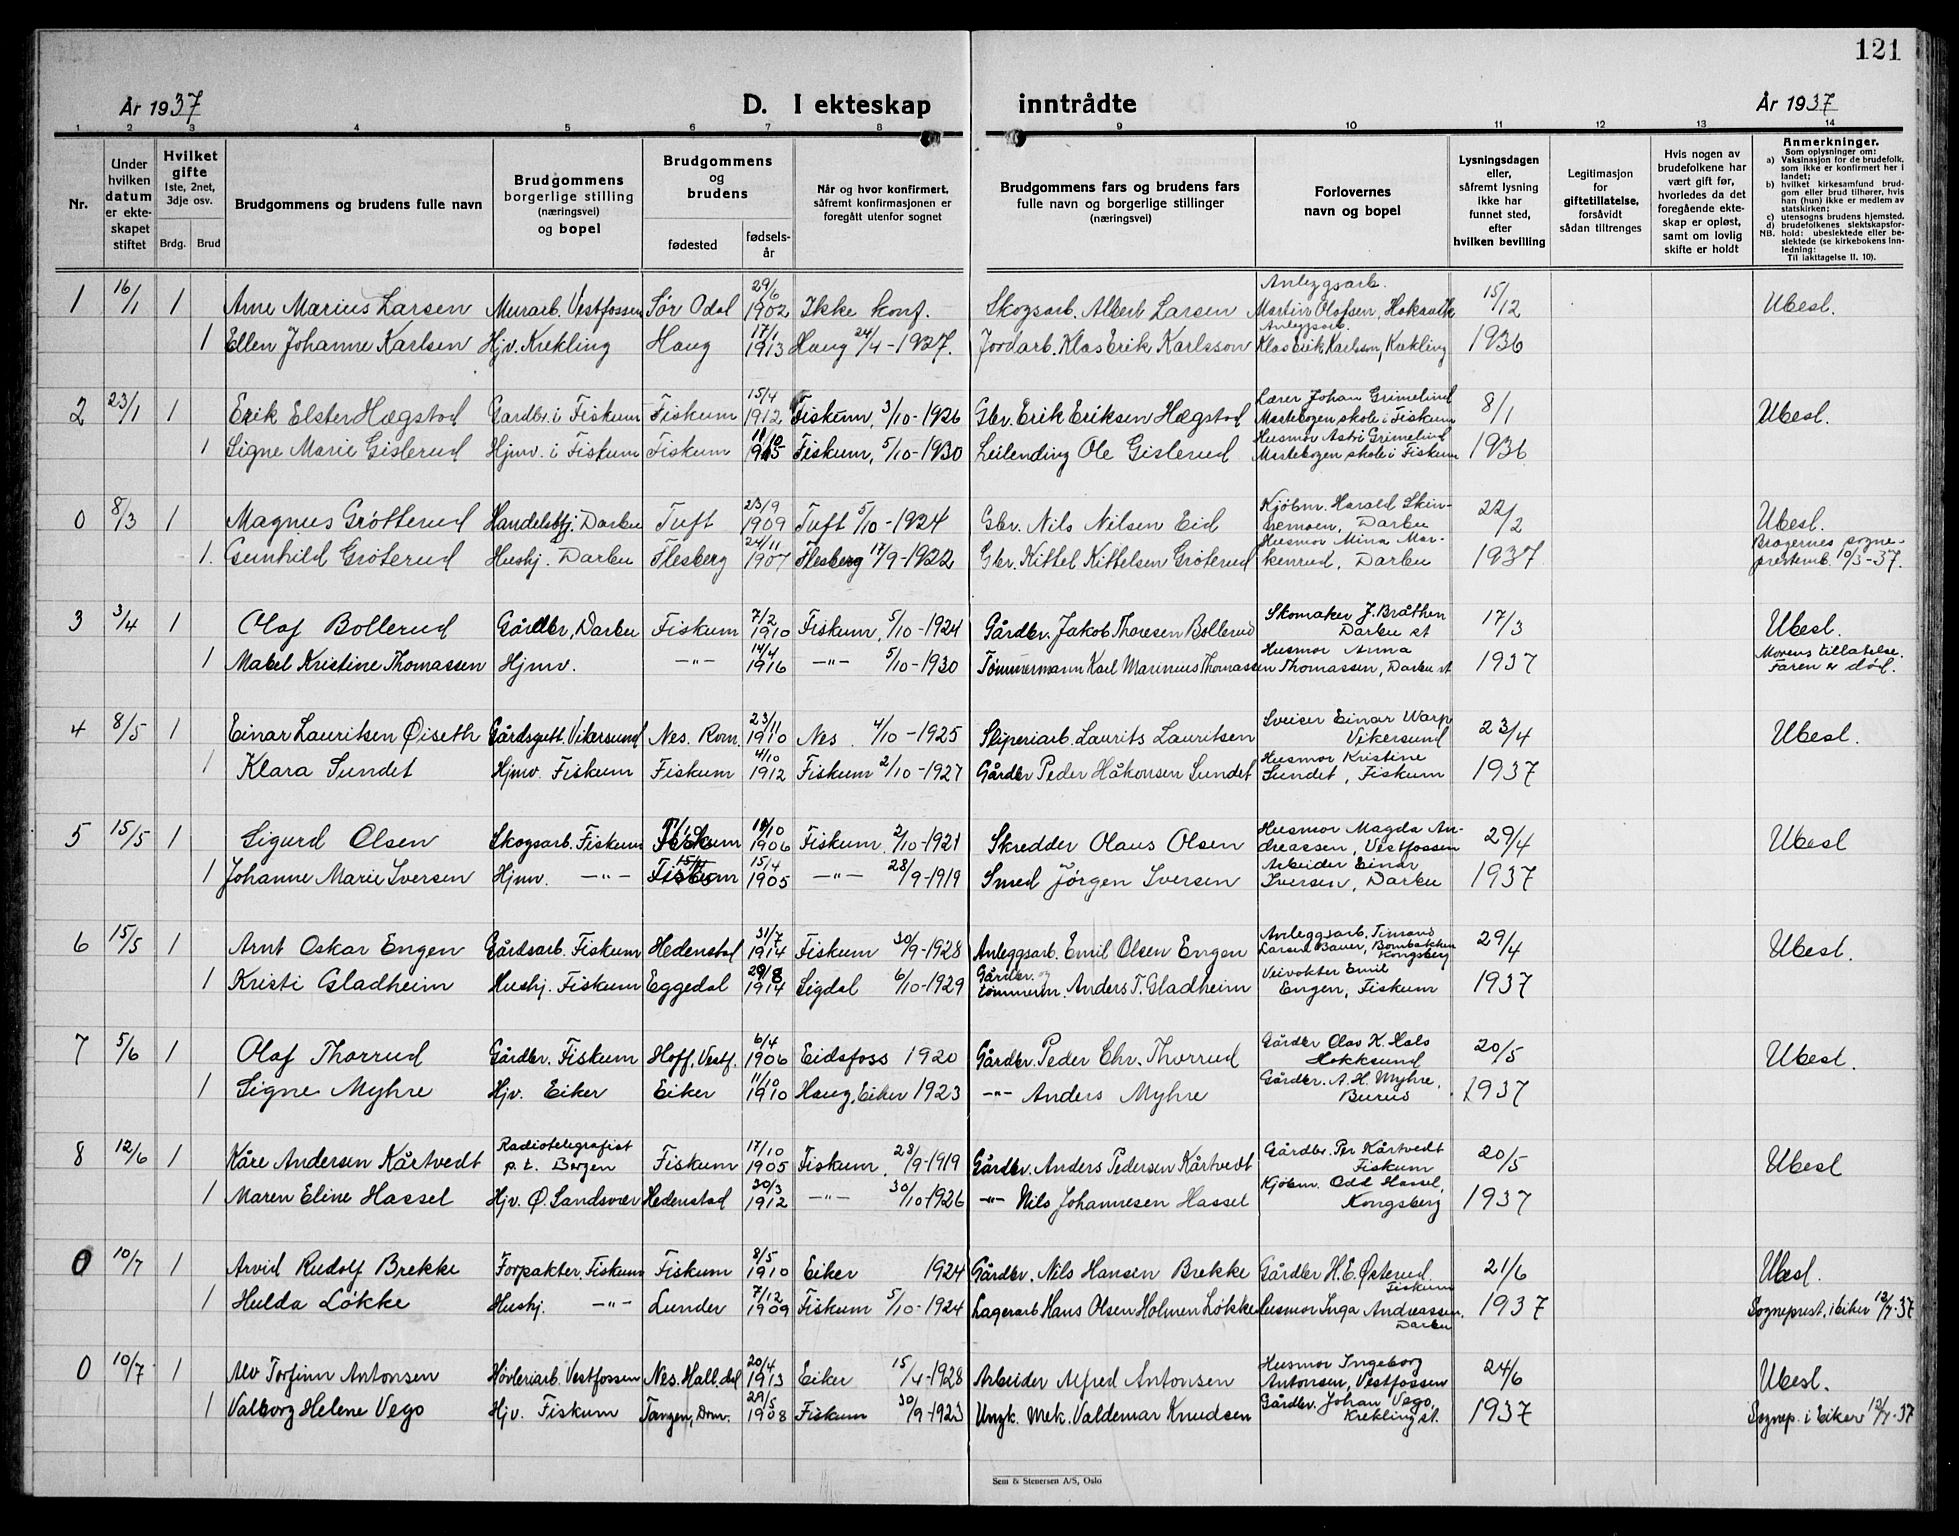 121
År 1937 D. I ekteskap inntrådte År 1937
1 2 3 4 5 6 7 8 9 10 11 12 13 14
Nr.
Under hvilken datum er ekteskapet stiftet
Hvilket gifte 1ste, 2net, 3dje osv.
Brdg. Brud
Brudgommens og brudens fulle navn
Brudgommens borgerlige stilling (næringsvei) og bopel
Brudgommens og brudens
fødested fødselsår
Når og hvor konfirmert, såfremt konfirmasjonen er foregått utenfor sognet
Brudgommens fars og brudens fars fulle navn og borgerlige stillinger (næringsvei)
Forlovernes navn og bopel
Lysningsdagen eller, såfremt lysning ikke har funnet sted, efter hvilken bevilling
Legitimasjon for giftetillatelse, forsåvidt sådan tiltrenges
Hvis nogen av brudefolkene har vært gift før, hvorledes da det foregående ekteskap er opløst, samt om lovlig skifte er holdt
Anmerkninger.
Som oplysninger om:
a) Vaksinasjon for de brudefolk, som ikke er konfirmert her i landet;
b) hvilket kirkesamfund brudgom eller brud tilhører, hvis han (hun) ikke er medlem av statskirken;
c) utensogns brudens hjemsted.
d) brudefolkenes slektskapsforhold: ubeslektede eller beslektede (se kirkebokens innledning:
NB.
Til iakttagelse II. 10).
1 16/1 1 Arne Marius Larsen Murarb. Vestfossen Sør Odal 29/6 1902 Ikke konf. Skogsarb. Albert Larsen Anleggsarb. Martin Olafsen, 15/12 Ubesl.
1 Ellen Johanne Karlsen Hjv. Krekling Haug 17/1 1913 Haug 24/4-1927. Jordarb. Klas Erik Karlsson Anleggsarb. Klas Erik Karlsson, Krekling 1936
2 23/1 1 Erik Elster Hægstad Gardbr. i Fiskum Fiskum 15/4 1912 Fiskum, 3/10-1926 Gbr. Erik Eriksen Hægstad Lærer Johan Grimelund skole i Fiskum 8/1 Ubesl.
1 Signe Marie Gislerud Hjmv. i Fiskum Fiskum 11/10 1915 Fiskum, 5/10-1930 Leilending Ole Gislerud Husmor Astri Grimelund skole i Fiskum 1936
0 8/3 1 Magnus Grøtterud Handelsbtj. Darbu Tuft 23/9 1909 Tuft 5/10-1924 Gbr. Nils Nilsen Eid Kjøbm. Harald Skinsemoen, Darbu 22/2 Ubesl.
1. Gunhild Grøterud Hushj. Darbu Flesberg 24/11 1907 Flesberg 17/9-1922 Gbr. Kittel Kittelsen Grøterud Husmor Mina Markenrud, Darbu 1937 Bragernes sogneprestemb. 10/3-37.
3 3/4 1 Olaf Bollerud Gårdbr, Darbu Fiskum 7/2 1910 Fiskum, 5/10-1924 Gårdbr. Jakob Thoresen Bollerud Skomaker J. Bråthen Darbu st 17/3 Ubesl.
1 Mabel Kristine Thomassen Hjmv. -"- 14/4 1916 -"- 5/10-1930 Tømmermann Karl Marinius Thomassen Husmor Anna Thomassen, Darbu st 1937 Morens tillatelse. Faren er død.
4 8/5 1 Einar Lauritsen Øiseth Gårdsgutt Vikersund Nes. Rom. 23/11 1910 Nes. 4/10-1925 Sliperiarb. Laurits Lauritsen Sveiser Einar Warp Vikersund 23/4 Ubesl.
1 Klara Sundet Hjmv. Fiskum Fiskum 4/10 1912 Fiskum 2/10-1927 Gårdbr Peder Håkonsen Sundet Husmor Kristine Sundet, Fiskum 1937
5 15/5 1 Sigurd Olsen Skogsarb. Fiskum Fiskum 11/10 1906 Fiskum. 2/10-1921 Skredder Olaus Olsen Husmor Magda Andreassen, Vestfossen 29/4 Ubesl
1 Johanne Marie Iversen Hjmv. -"- Fiskum 15/4 1905 -"- 28/9-1919 Smed Jörgen Iversen Arbeider Einar Iversen, Darbu 1937
6 15/5 1 Arnt Oskar Engen Gårdsarb. Fiskum Hedenstad 31/7 1914 Fiskum 30/9-1928 Anleggsarb. Emil Olsen Engen Anleggsarb. Larsen Kongsberg 29/4 Ubesl.
1 Kristi Gladheim Hushj. Fiskum Eggedal 29/8 1914 Sigdal 6/10-1929 Gårdbr. og tømmerm. Anders T. Gladheim Veivokter Emil Engen, Fiskum 1937
7 5/6 1 Olaf Thorrud Gårdbr. Fiskum Hoff, Vestf. 6/4 1906 Eidsfoss 1920 Gårdbr. Peder Chr. Thorrud Gårdbr Olas K. Hals Hokksund 20/5 Ubesl.
1 Signe Myhre Hjv. Eiker Eiker 11/10 1910 Haug, Eiker 1923 -"- Anders Myhre Gårdbr. A. H. Myhre, Burud 1937
8 12/6 1 Kåre Andersen Kårtvedt Radiotelegrafist p. t. Bergen Fiskum 17/10 1905 Fiskum. 28/9-1919 Gårdbr. Anders Pedersen Kårtvedt Gårdbr. Per Kårtvedt Fiskum 20/5 Ubesl
1 Maren Eline Hassel Hjv. Ø. Sandsvær Hedenstad 20/3 1912 -"- 30/10-1926 -"- Nils Johannesen Hassel Kjøbm. Odd Hassel, Kongsberg 1937
0 10/7 1 Arvid Rudolf Brekke Forpakter, Fiskum Fiskum 8/5 1910 Eiker 1924 Gårdbr. Nils Hansen Brekke Gårdbr H. E. Østerud. Fiskum 21/6 Ubesl.
1 Hulda Løkke Hushj. -"- Lunder 7/12 1909 Fiskum 5/10-1924 Lagerarb Hans Olsen Holmen Løkke Husmor Inga Andreassen. Darbu 1937 Sogneprest. i Eiker 12/7-37
0 10/7 1 Alv Torfinn Antonsen Høvleriarb. Vestfossen Nes. Hall.dal 20/4 1913 Eiker 15/4-1928 Arbeider Alfred Antonsen Husmor Ingeborg Antonsen, Vestfossen 24/6 Ubesl.
1 Valborg Helene Vego Hjv. Fiskum Tangen, Drm. 29/5 1908 Fiskum 30/9-1923 Ungk. Mek. Valdemar Knudsen Gårdbr. Johan Vego, Krekling st. 1937 Sognep. i Eiker 12/7-37
Sem & Stenersen A/S, Oslo